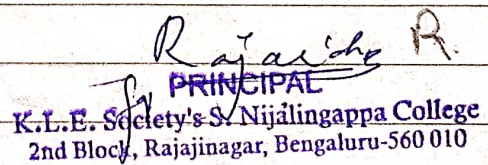 R.
PRINCIPAL
K.L.E. Society's S. Nijalingappa College
2nd Block, Rajajinagar, Bengaluru-560 010